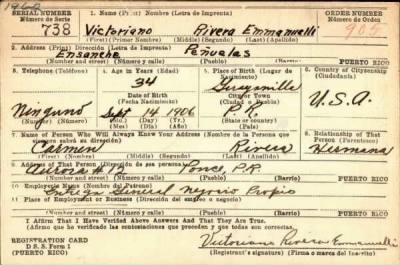 1940
SERIAL NUMBER 1. Name (Print) Nombre (Letra de Imprenta) ORDER NUMBER
Número de Serie Número de Orden
738 Victoriano Rivera Emmanuelli 905
(First) Primer Nombre (Middle) (Segundo) (Last) (Apellido)
2. Address (Print) Dirección (Letra de Imprenta)
Ensanche Peñuelas
(Number and street) (Número y calle) (Barrio) (Pueblo) PUERTO RICO
3. Telephone (Teléfono) 4. Age in Years (Edad) 5. Place of Birth (Lugar de Nacimiento) 6. Country of Citizenship (Ciudadanía)
34 Guayanilla
Date of Birth City or Town
(Fecha Nacimiento) (Ciudad o Pueblo)
Ninguno Sept 14 1906 P.R. U.S.A.
(Number) (Número) (Mo.) (Day) (Yr.) State or country
(Mes) (Día) (Año) (Estado o país)
7. Name of Person Who Will Always Know Your Address (Nombre de la Persona que 8. Relationship of That Person (Parentesco)
siempre sabrá su dirección)
Carmen Rivera Hermana
(First) (Nombre) (Middle) (Segundo) (Last) (Apellido)
9. Address of That Person (Dirección de esa persona)
Aurora # 12 Ponce, P.R.
(Number and street) (Número y calle) (Barrio) (Pueblo) PUERTO RICO
10. Employer's Name (Nombre del Patrono)
General Negocio Propio
11. Place of Employment or Business (Dirección del empleo o negocio)
(Number and street) (Número y calle) (Barrio) (Pueblo) PUERTO RICO
I Affirm That I Have Verified Above Answers and That They are True.
(Afirmo que he verificado las contestaciones que preceden y que todas son correctas.)
REGISTRATION CARD
D. S. S. Form 1 Victoriano Rivera Emmanuelli
(PUERTO RICO) (Registrant's signature) (Firma o marca del Inscrito)